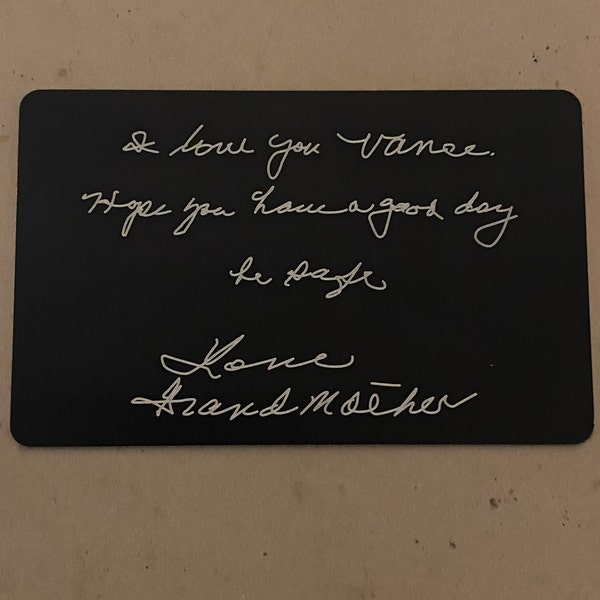 I love you Vance.
Hope you have a good day
be safe
Love
Grand Mother